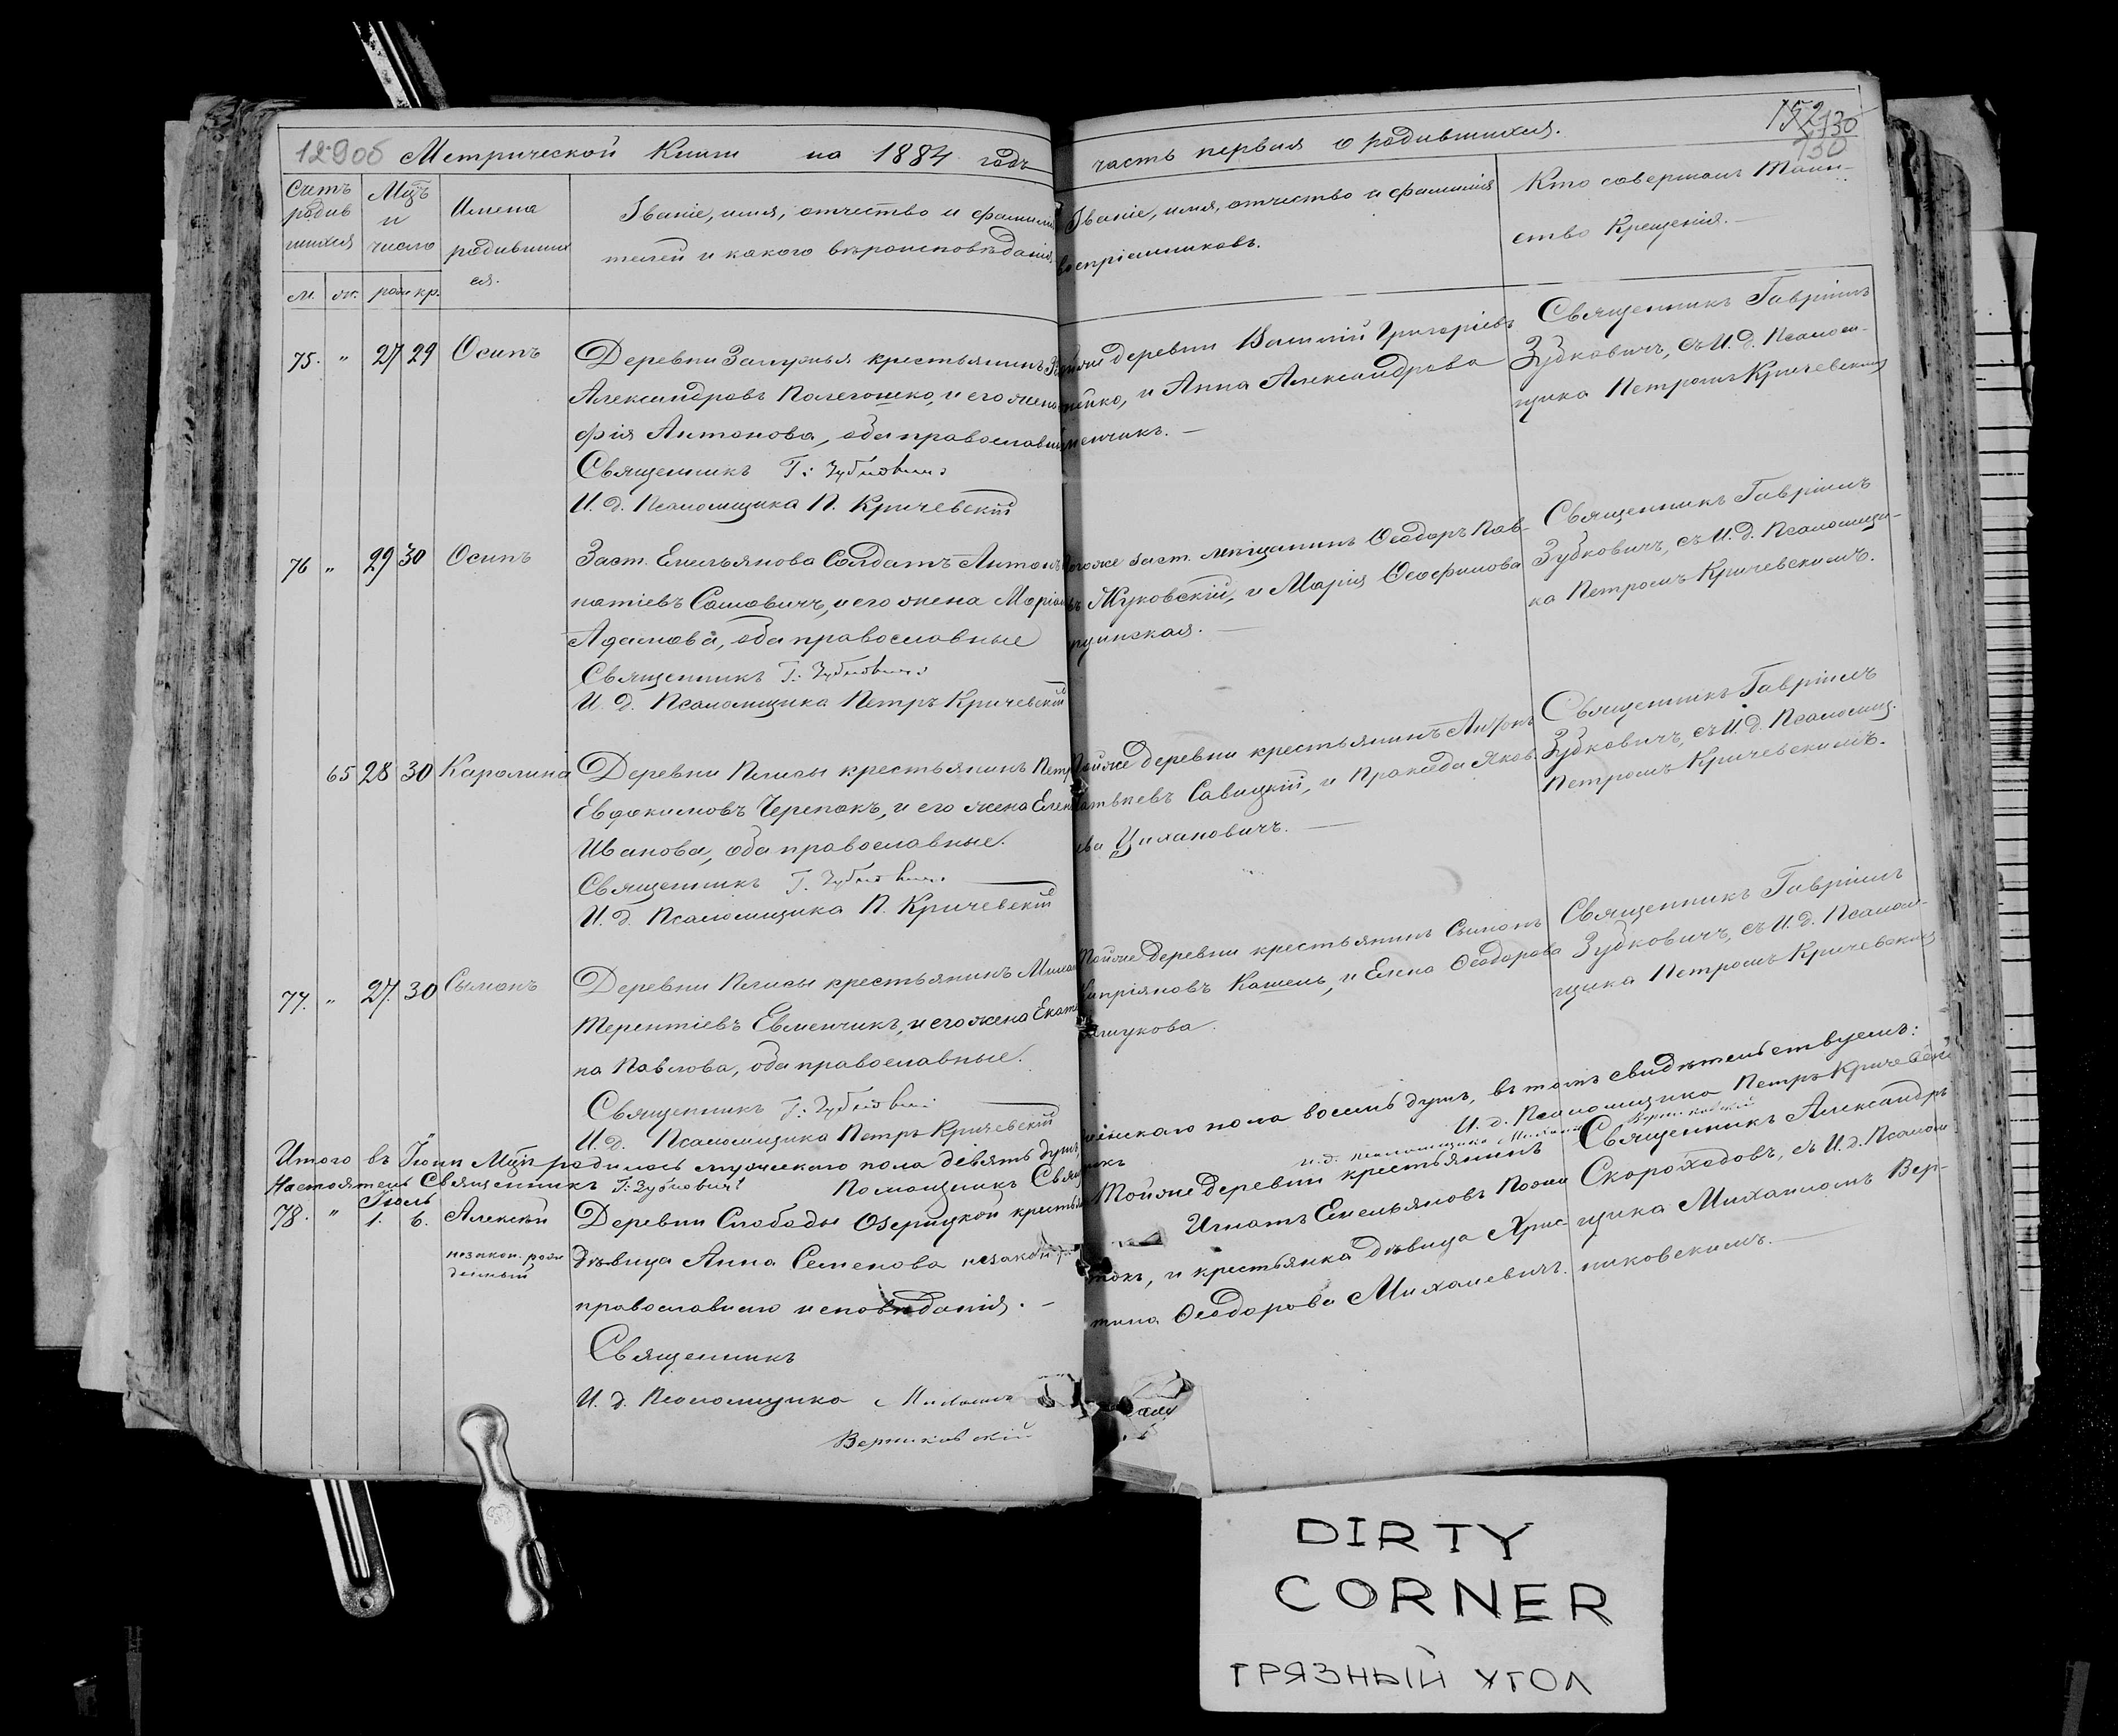 129об Метрической Книги на 1884 годъ часть первая о родившихся.
152 130
130
Счетъ родив шихся
Мцъ и число
Имена родивших ся.
Званіе, имя, отчество и фамилія
телей и какого вѣроисповѣданія
Званіе, имя, отчество и фамилія
воспріемниковъ.
Кто совершалъ Таин-
ство Крещенія.
м. ж. роди кр.
75. " 27 29 Осипъ
Деревни Залужья крестьянинъ
Александровъ Полегошко, и его жена
фія Антонова, оба православны
Священникъ Г: Зубковичъ
И. д. Псаломщика П. Кричевскій
деревни Василій Григоріевъ
и Анна Александрова
менчикъ. —
Священникъ Гавріилъ
Зубковичъ, съ И. д. Псалом-
щика Петромъ Кричевскимъ
76 " 29 30 Осипъ
Заст. Емельянова Солдатъ Антонъ
натіевъ Самовичъ, и его жена Маріан
Адамова, оба православные
Священникъ Г: Зубковичъ
И. д. Псаломщика Петръ Кричевскій
тогоже Заст. мѣщанинъ Ѳеодоръ Пав-
въ Жуковскій, и Марія Ѳеофилова
Священникъ Гавріилъ
Зубковичъ, съ И. д. Псаломщи-
ка Петромъ Кричевскимъ.
65 28 30 Каролина
Деревни Плисы крестьянинъ Петр
Евдокимовъ Черепокъ, и его жена Елен
Иванова, оба православные.
Священникъ Г. Зубковичъ
И. д. Псаломщика П. Кричевскій
Тойже деревни крестьянинъ Антонъ
Савицкій, и Пракседа Яков
ева Цихановичъ. —
Священникъ Гавріилъ
Зубковичъ, съ И. д. Псаломщ.
Петромъ Кричевскимъ.
77. " 27. 30 Сымонъ
Деревни Плисы крестьянинъ Михаи
Терентіевъ Евменчикъ, и его жена Екате
на Павлова, оба православные.
Священникъ Г: Зубковичъ
И. д. Псаломщика Петръ Кричевскій
Тойже деревни крестьянинъ Сымонъ
Кипріяновъ Кашель, и Елена Ѳеодорова
Священникъ Гавріилъ
Зубковичъ, съ И. д. Псалом-
щика Петромъ Кричевскимъ
Итого въ Іюнѣ Мцѣ родилось мужескаго пола девять душъ, женскаго пола восемь душъ, въ томъ свидѣтельствуемъ:
Настоятель Священникъ Г: Зубковичъ Помощникъ Священникъ И. д. Псаломщика Петръ Кричевскій
И. д. Псаломщика Михаилъ Верниковскій
Іюль
78. " 1. 6. Алексѣй
незакон. рож
денный
Деревни Слободы Озерицкой крестьян
дѣвица Анна Семенова незакон
православнаго исповѣданія. —
Священникъ
И. д. Псаломщика Михаилъ
Верниковскій
Тойже деревни крестьянинъ
Игнатъ Емельяновъ
и крестьянка дѣвица Хрис-
тина Ѳеодорова Михалевичъ.
Священникъ Александръ
Скороходовъ, съ И. д. Псалом
щика Михаиломъ Вер-
никовскимъ. —
DIRTY
CORNER
ГРЯЗНЫЙ УГОЛ